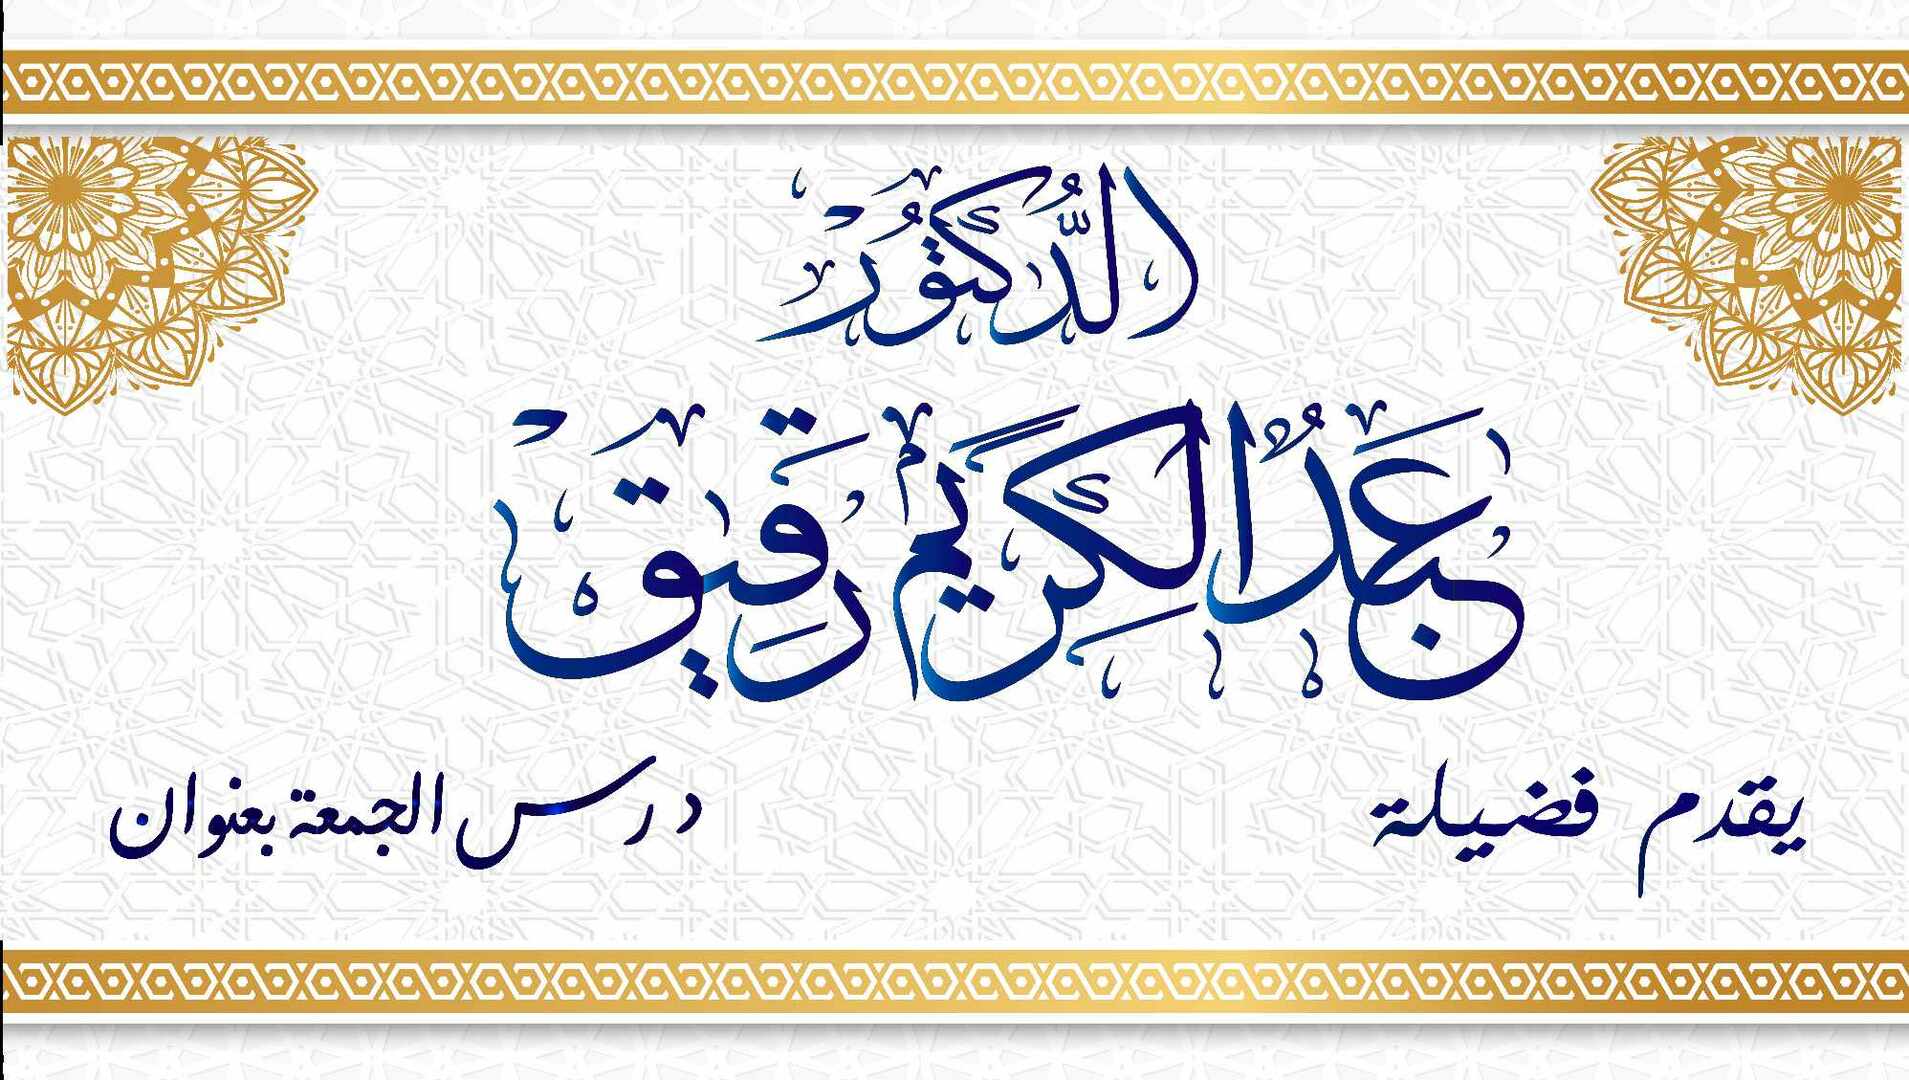 الدُّكتُورْ
عَبدُ الكَرِيم رَقِيقْ
يقدم فضيلة درس الجمعة بعنوان